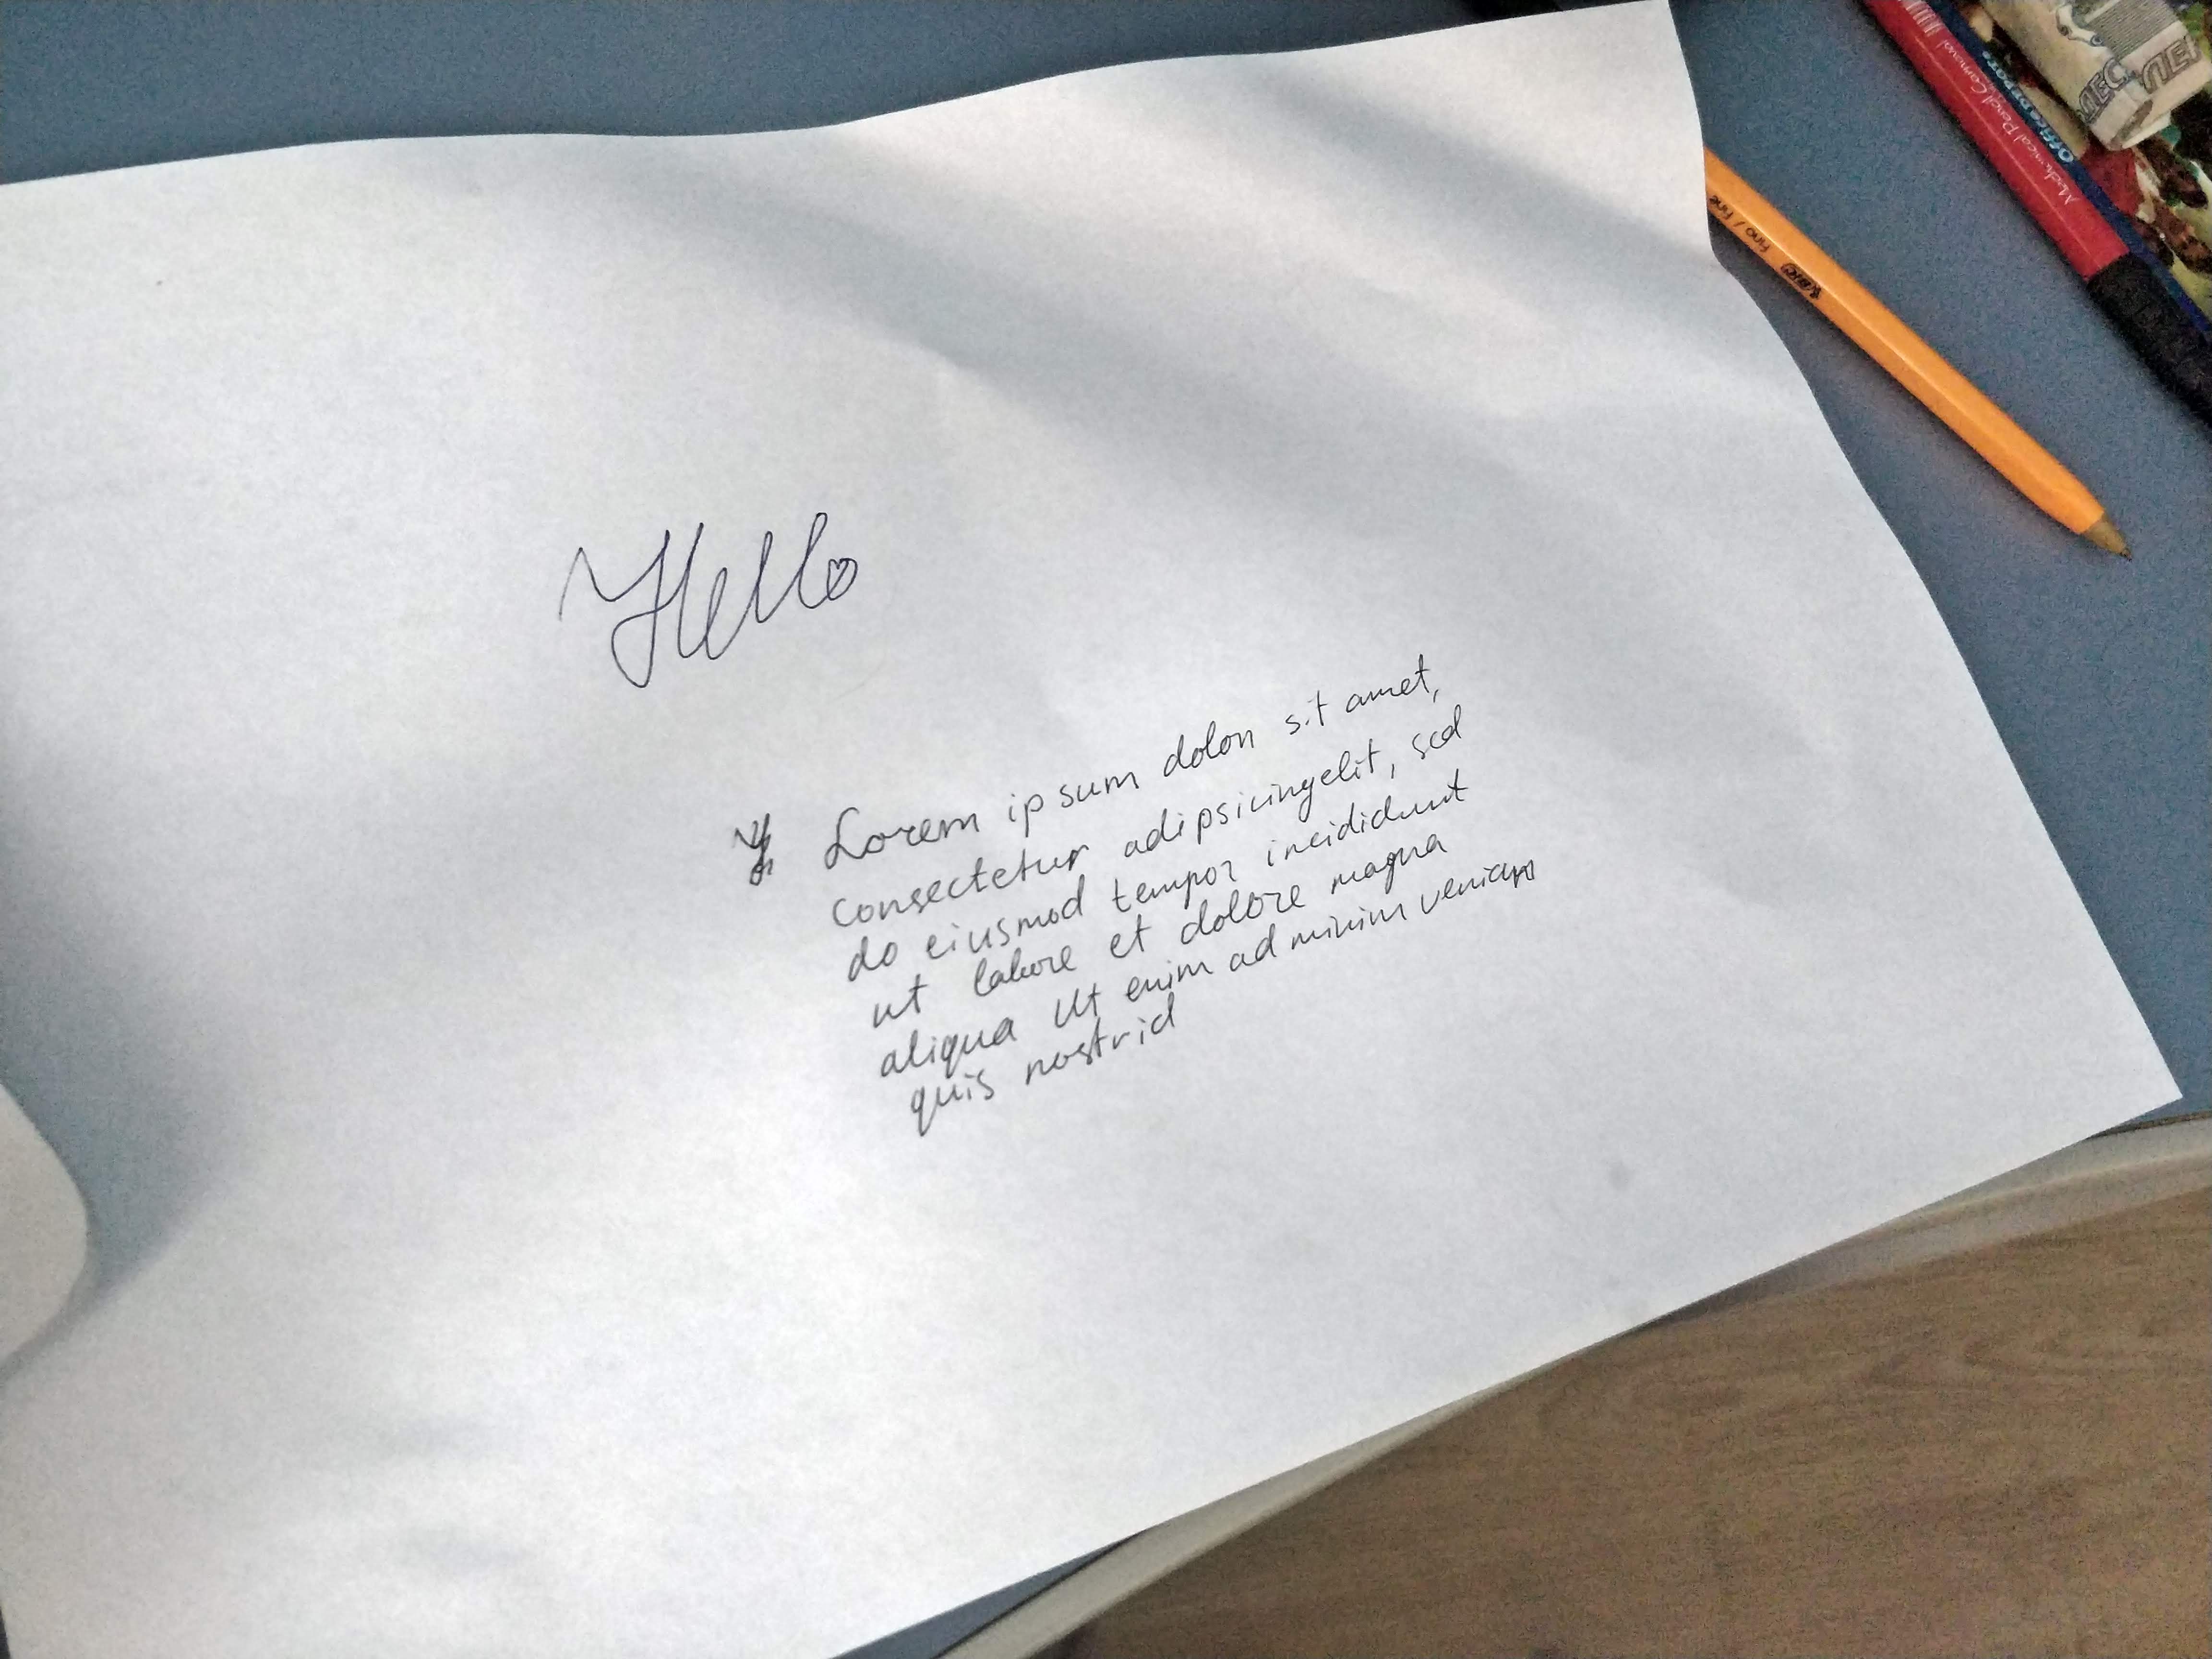 Hello
Lorem ipsum dolon sit amet,
consectetur adipsicingelit, sed
do eiusmod tempor incididunt
ut labore et dolore magna
aliqua Ut enim ad minim veniam
quis nostrid
fino / fine
BIC
Mechanical Pencil Carnaval
Office DEPOT